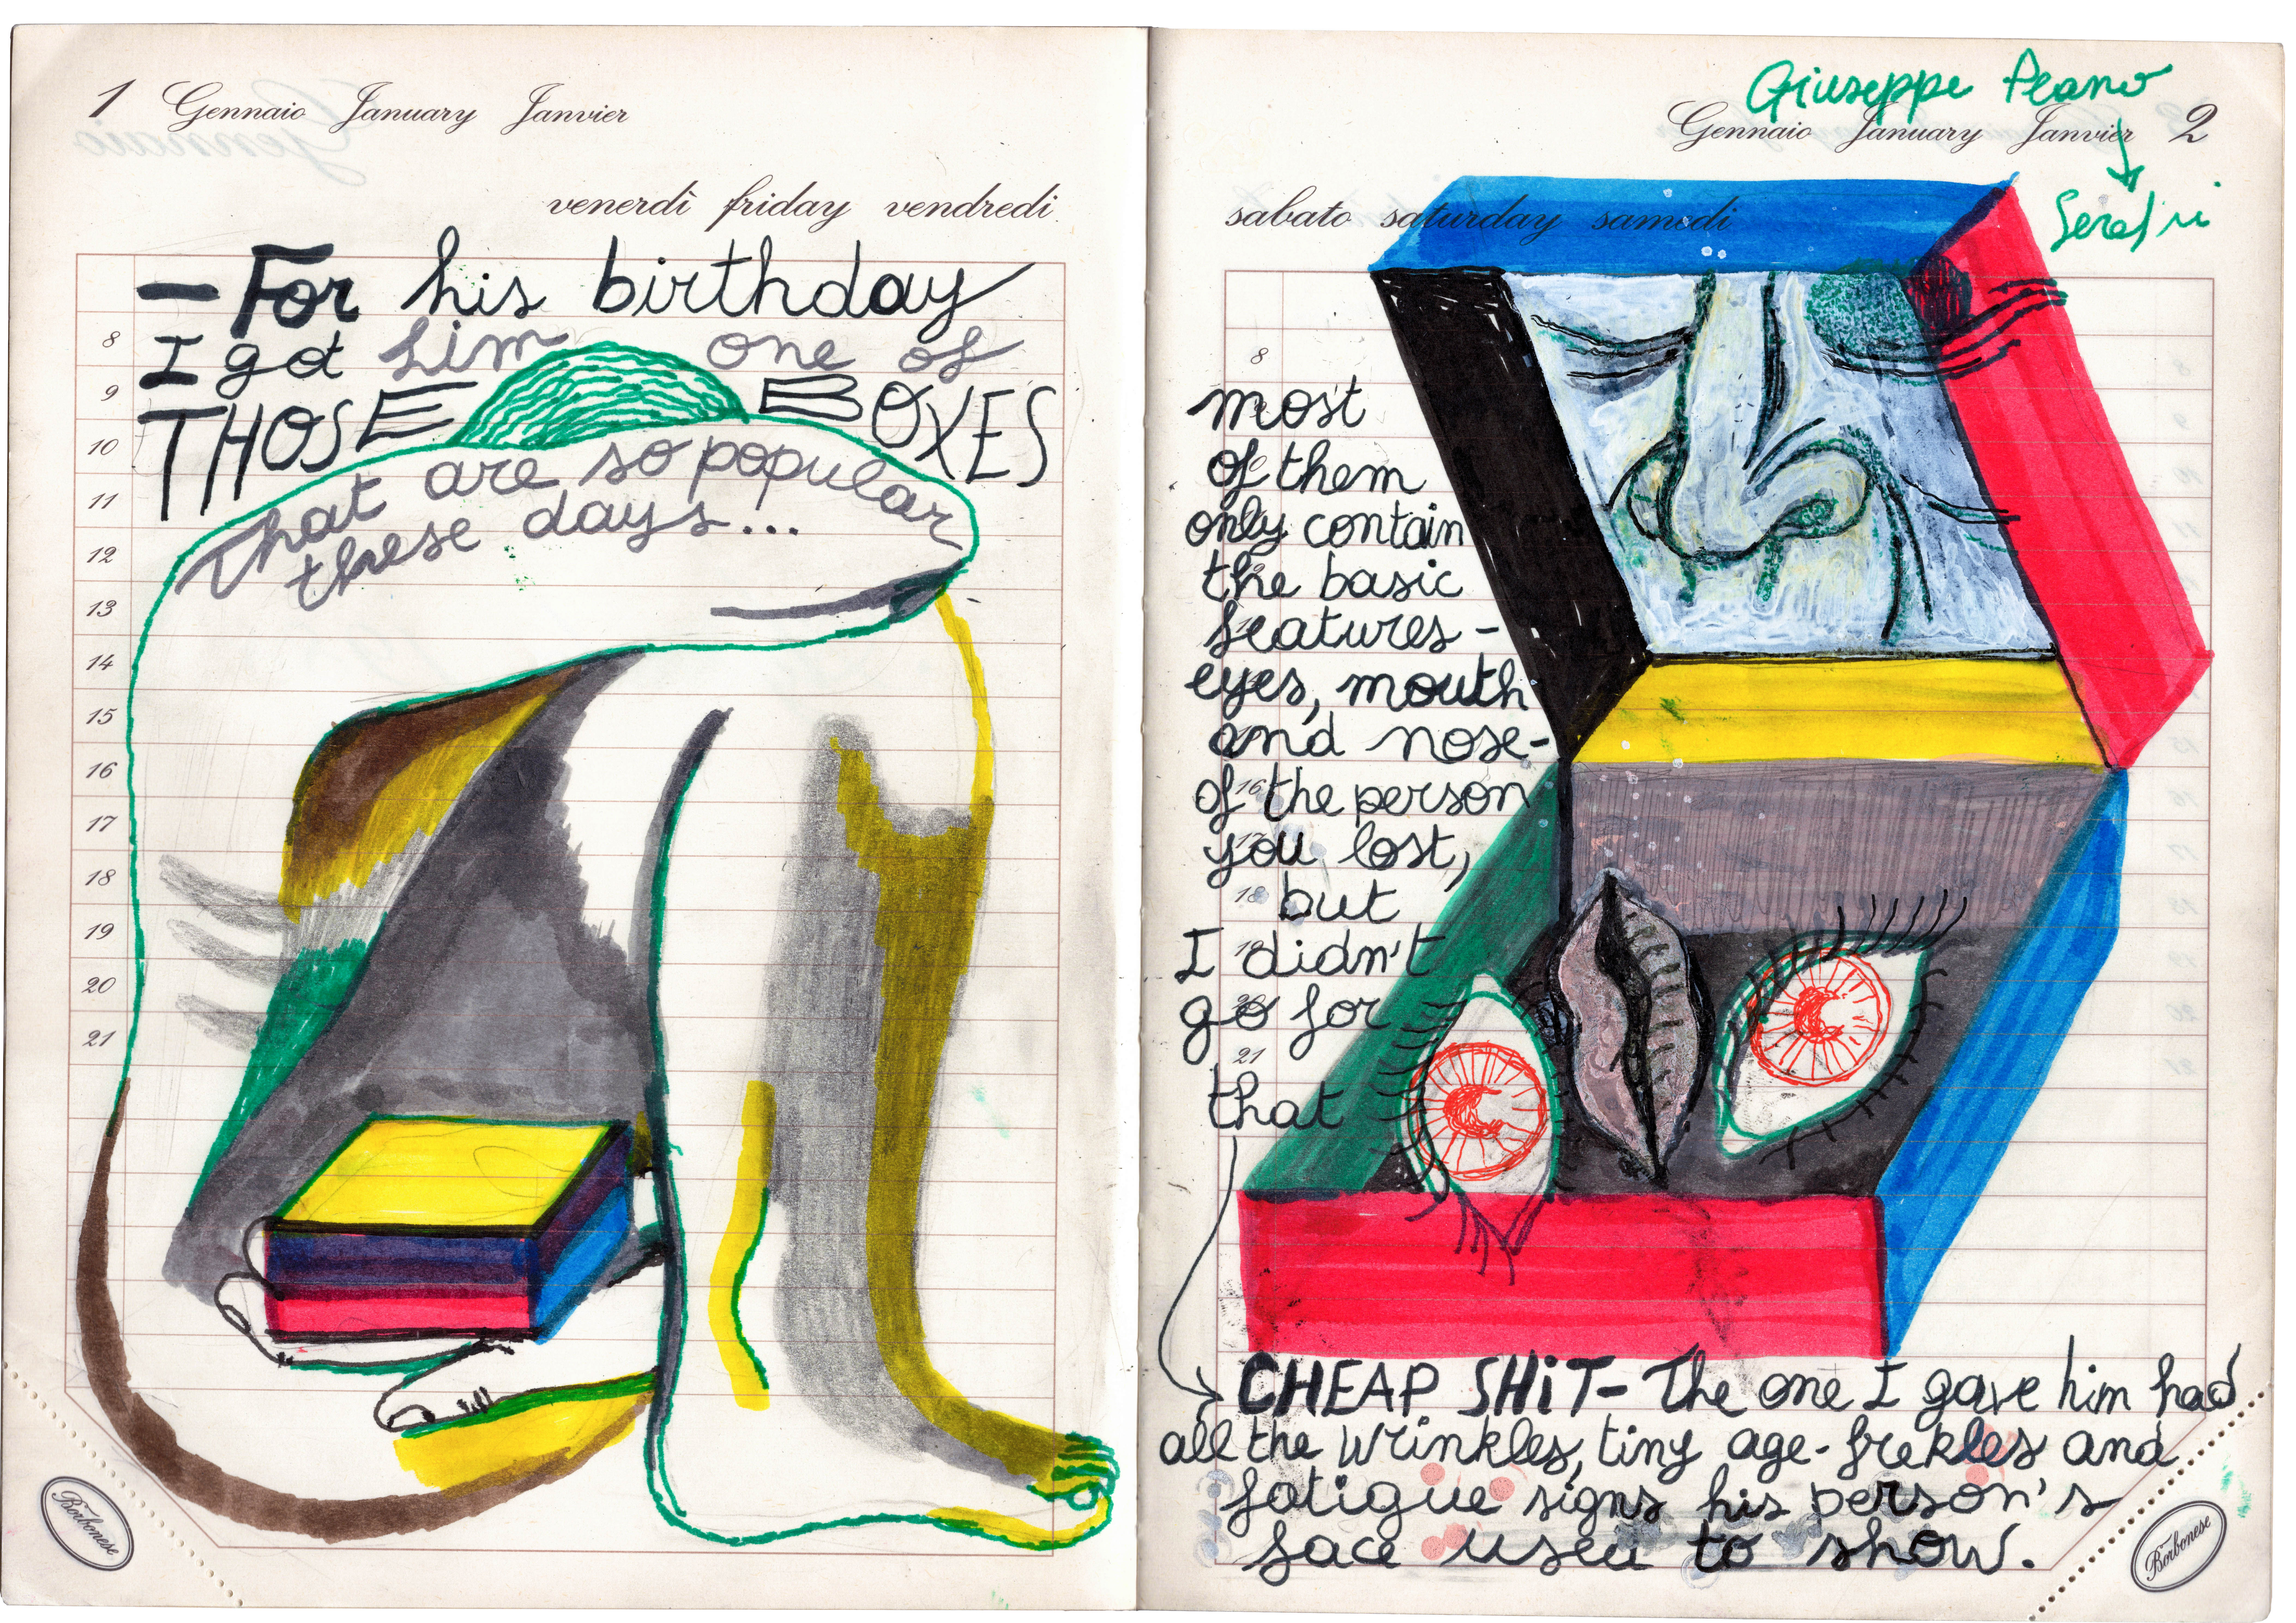 1 Gennaio January Janvier
venerdì friday vendredi
— For his birthday
8
I got him one of
9
THOSE BOXES
10
That are so popular
11
these days...
12
13
14
15
16
17
18
19
20
21
Borbonese
Giuseppe Peano
Gennaio January Janvier 2
sabato saturday samedi
8
most
of them
only contain
the basic
features -
eyes, mouth
and nose-
16
of the person
17
you lost,
18
but
19
I didn't
20
go for
21
that
CHEAP SHiT- The one I gave him had
all the wrinkles, tiny age-frekles and
fatigue signs his person's
face used to show.
Borbonese